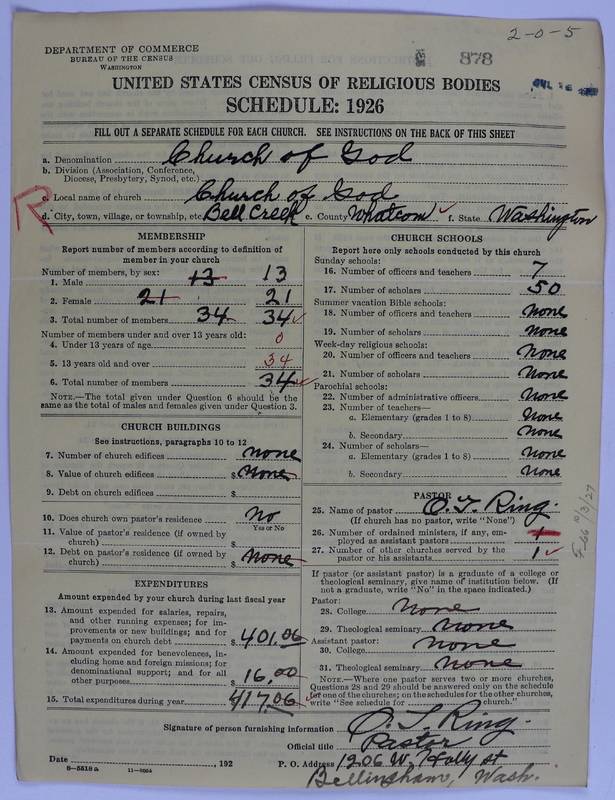 2-0-5
DEPARTMENT OF COMMERCE
BUREAU OF THE CENSUS
WASHINGTON
878
UNITED STATES CENSUS OF RELIGIOUS BODIES
SCHEDULE: 1926
FILL OUT A SEPARATE SCHEDULE FOR EACH CHURCH. SEE INSTRUCTIONS ON THE BACK OF THIS SHEET
a. Denomination Church of God
b. Division (Association, Conference,
Diocese, Presbytery, Synod, etc.)
R
c. Local name of church Church of God
d. City, town, village, or township, etc. Bell Creek e. County Whatcom f. State Washington
MEMBERSHIP
Report number of members according to definition of
member in your church
Number of members, by sex:
1. Male 13 13
2. Female 21 21
3. Total number of members 34 34
Number of members under and over 13 years old:
4. Under 13 years of age 0
5. 13 years old and over 34
6. Total number of members 34
NOTE.—The total given under Question 6 should be the
same as the total of males and females given under Question 3.
CHURCH BUILDINGS
See instructions, paragraphs 10 to 12
7. Number of church edifices none
8. Value of church edifices $ None
9. Debt on church edifices $
10. Does church own pastor's residence No
Yes or No
11. Value of pastor's residence (if owned by
church) $
12. Debt on pastor's residence (if owned by
church) $ None
EXPENDITURES
Amount expended by church during last fiscal year
13. Amount expended for salaries, repairs,
and other running expenses; for im-
provements or new buildings; and for
payments on church debt $ 401.06
14. Amount expended for benevolences, in-
cluding home and foreign missions; for
denominational support; and for all
other purposes $ 16.00
15. Total expenditures during year $ 417.06
CHURCH SCHOOLS
Report here only schools conducted by this church
Sunday schools:
16. Number of officers and teachers 7
17. Number of scholars 50
Summer vacation Bible schools:
18. Number of officers and teachers none
19. Number of scholars none
Week-day religious schools:
20. Number of officers and teachers none
21. Number of scholars none
Parochial schools:
22. Number of administrative officers none
23. Number of teachers—
a. Elementary (grades 1 to 8) none
b. Secondary none
24. Number of scholars—
a. Elementary (grades 1 to 8) none
b. Secondary none
PASTOR
25. Name of pastor O. T. Ring.
(If church has no pastor, write "None")
26. Number of ordained ministers, if any, em-
ployed as assistant pastors 1
27. Number of other churches served by the
pastor or his assistants 1
If pastor (or assistant pastor) is a graduate of a college or
theological seminary, give name of institution below. (If
not a graduate, write "No" in the space indicated.)
Pastor:
28. College None
29. Theological seminary None
Assistant pastor:
30. College None
31. Theological seminary None
NOTE.—Where one pastor serves two or more churches,
Questions 28 and 29 should be answered only on the schedule
for one of the churches; on the schedules for the other churches,
write "See schedule for church."
Signature of person furnishing information O. T. Ring.
Official title Pastor
Date , 192
P. O. Address 1206 W. Holly st
Bellingham, Wash.
8-5518 a 11-9064